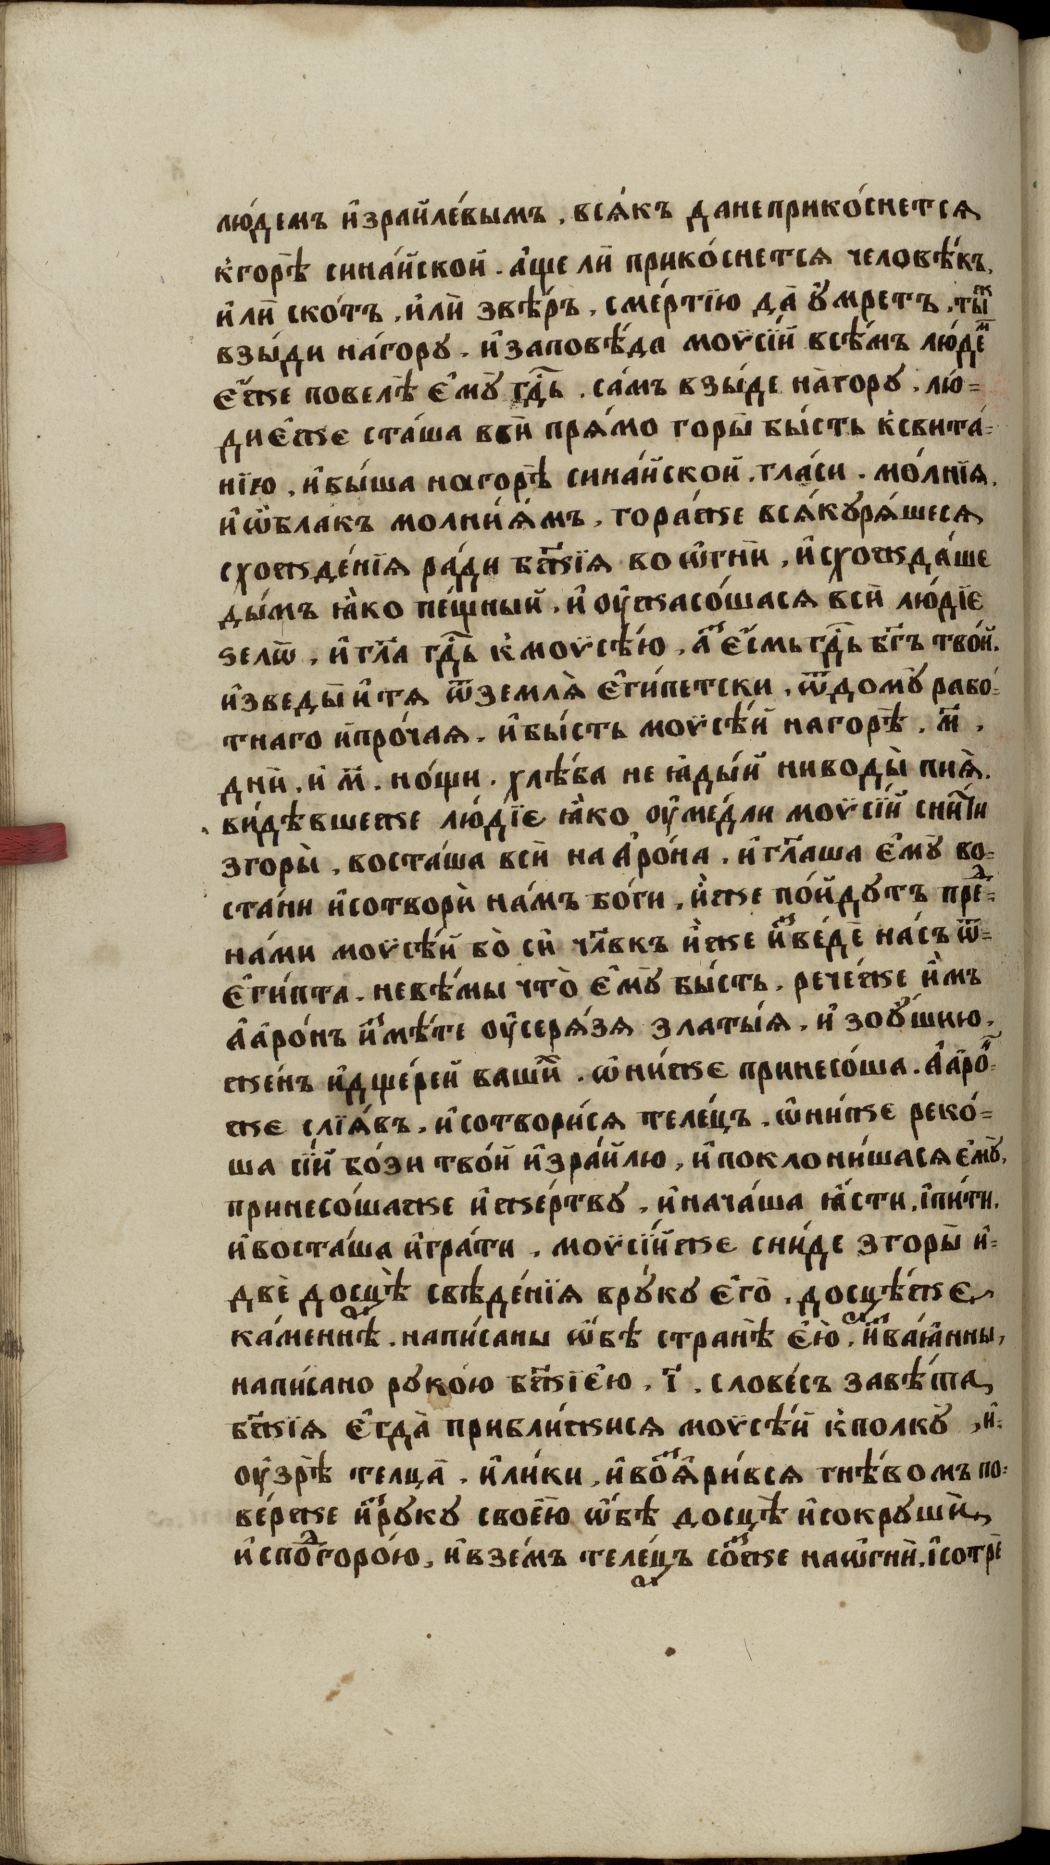 лю́демъ и҆зраилє́вымъ , всѧ́къ данеприко́снетсѧ
к҆горѣ̀ сина́йской . а҆ще лѝ прико́снетсѧ человѣ́къ ,
и҆лѝ ско́тъ , и҆лѝ звѣ́ръ , сме́ртїю да̀ ѹ҆мретъ , ты̀
взы́ди на́гору . и҆заповѣ́да моѵсі́й всѣ́мъ лю́деⷨ
є҆́же повелѣ̀ є҆мꙋ̀ гдⷭ҇ь . са́мъ взы́де на̀гору . лю́=
диє҆́же ста́ша всѝ прѧ́мо горы̀ бы́сть к҆свита́=
нїю , и҆бы́ша нагорѣ̀ сина́йской . гла́си . мо́лнїѧ ,
и҆ѡ҆́блакъ молнїѧ́мъ , гора́же всѧ́курѧ́шесѧ
схожде́нїѧ ра́ди бж҃їѧ во ѡ҆гни̑ , и҆схожда́ше
ды́мъ ꙗ҆́ко пе́щный , и҆ оу҆жасо́шасѧ всѝ лю́дїє
ѕелѡ̀ , и҆ гл҃а гдⷭ҇ь к҆ моѵсѣ́ю , а҆́зⸯ є҆́смь гдⷭ҇ь бг҃ъ тво́й .
и҆зведы́и тѧ ѿземлѧ̀ є҆ги́петски , ѿдому̀ рабо́=
тнаго и҆про́чаѧ . и҆бы́сть моѵсѣ́й нагорѣ̀ . м҃ ,
днѝ . и҆ м҃ . но́щи . хлѣ́ба не ꙗ҆ды́й ниводы̀ пиѧ̀ .
ви́дѣвшеже лю́дїє ꙗ҆́ко оу҆ме́дли моѵсі́й сни́ти
згоры̀ , воста́ша всѝ на а҆ро́на . и҆ гл҃аша є҆мꙋ̀ во=
ста́ни и҆сотворѝ на́мъ бо́ги , и҆́же по́йдутъ преⷣ=
на́ми моѵсѣ́й бо̀ сѝ чл҃вкъ и҆́же и҆зⸯве́де на́съ ѿ=
є҆ги́пта . невѣ́мы что̀ є҆мꙋ̀ бы́сть . рече́же и҆́мъ
а҆аро́нъ и҆мѣ́те оу҆серѧ́зѧ златы́ѧ . и҆ зоу҆́шию ,
же́нъ и҆дще́рей ва́шиⷯ . ѡ҆ни́же принесо́ша . а҆аро́ⷩ=
же слїѧ́въ , и҆сотвори́сѧ теле́цъ . ѡ҆ни́же реко́=
ша сі́й бо́зи тво́й и҆зра́илю , и҆поклони́шасѧ є҆мꙋ̀ ,
принесо́шаже и҆ же́ртву , и҆нача́ша ꙗ҆́сти , і҆пи́ти ,
и҆воста́ша и҆гра́ти , моѵсі́йже сни́де згоры̀ и҆=
двѐ досцѣ̀ свѣде́нїѧ вру́ку є҆гѡ̀ . досцѣ́же
ка́меннѣ . напи́саны ѡ҆́бѣ странѣ̀ є҆ю̀ . и҆зⸯваѧ҆нны ,
напи́сано руко́ю бж҃їєю , і҃ . слове́съ завѣ́та
бж҃їѧ є҆гда̀ прибли́жисѧ моѵсѣ́й к҆полкꙋ̀ , и҆=
оу҆зрѣ̀ телца̀ . и҆ли́ки , и҆возⸯѧ҆ри́всѧ гнѣ́вомъ по=
ве́рже и҆зⸯруку своє́ю ѡ҆́бѣ досцѣ̀ и҆сокрушѝ
и҆споⷣгоро́ю , и҆взе́мъ теле́цъ со́жⸯже наѡ҆гнѝ . і҆сотрѐ